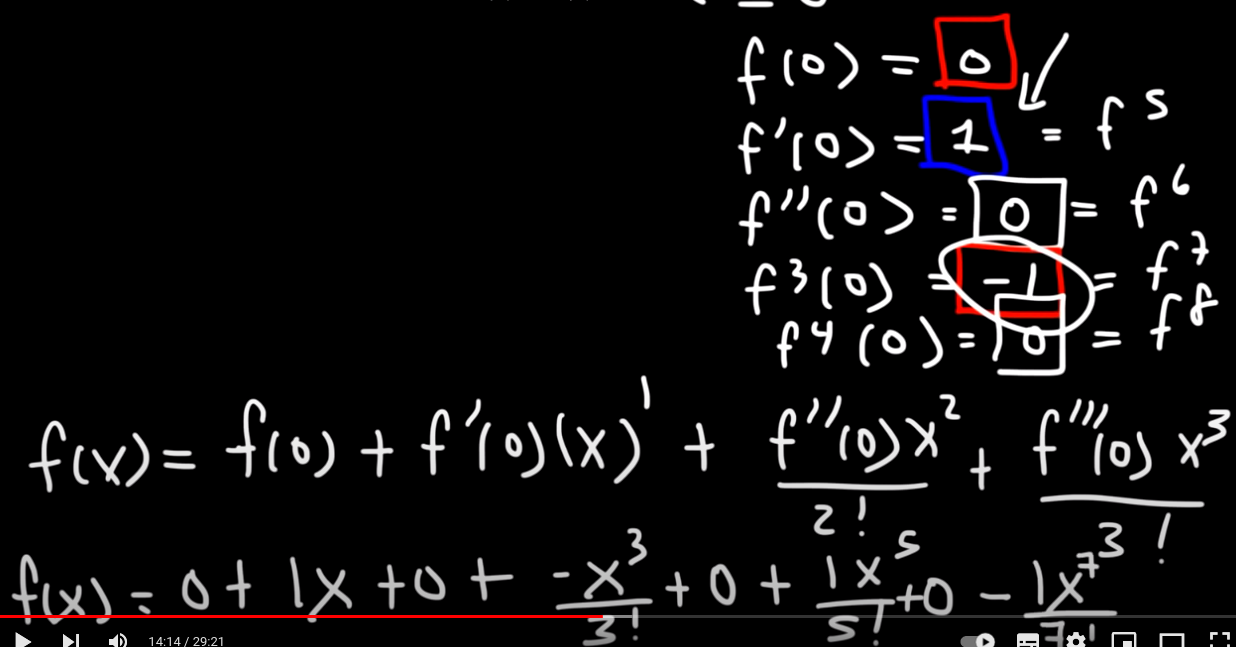 f(0) = 0
f'(0) = 1 = f^5
f''(0) = 0 = f^6
f^3(0) = -1 = f^7
f^4(0) = 0 = f^8
f(x) = f(0) + f'(0)(x)^1 + f''(0)x^2/2! + f'''(0) x^3/3!
f(x) = 0 + 1x + 0 + -x^3/3! + 0 + 1x^5/5! + 0 - 1x^7/7!
14:14 / 29:21